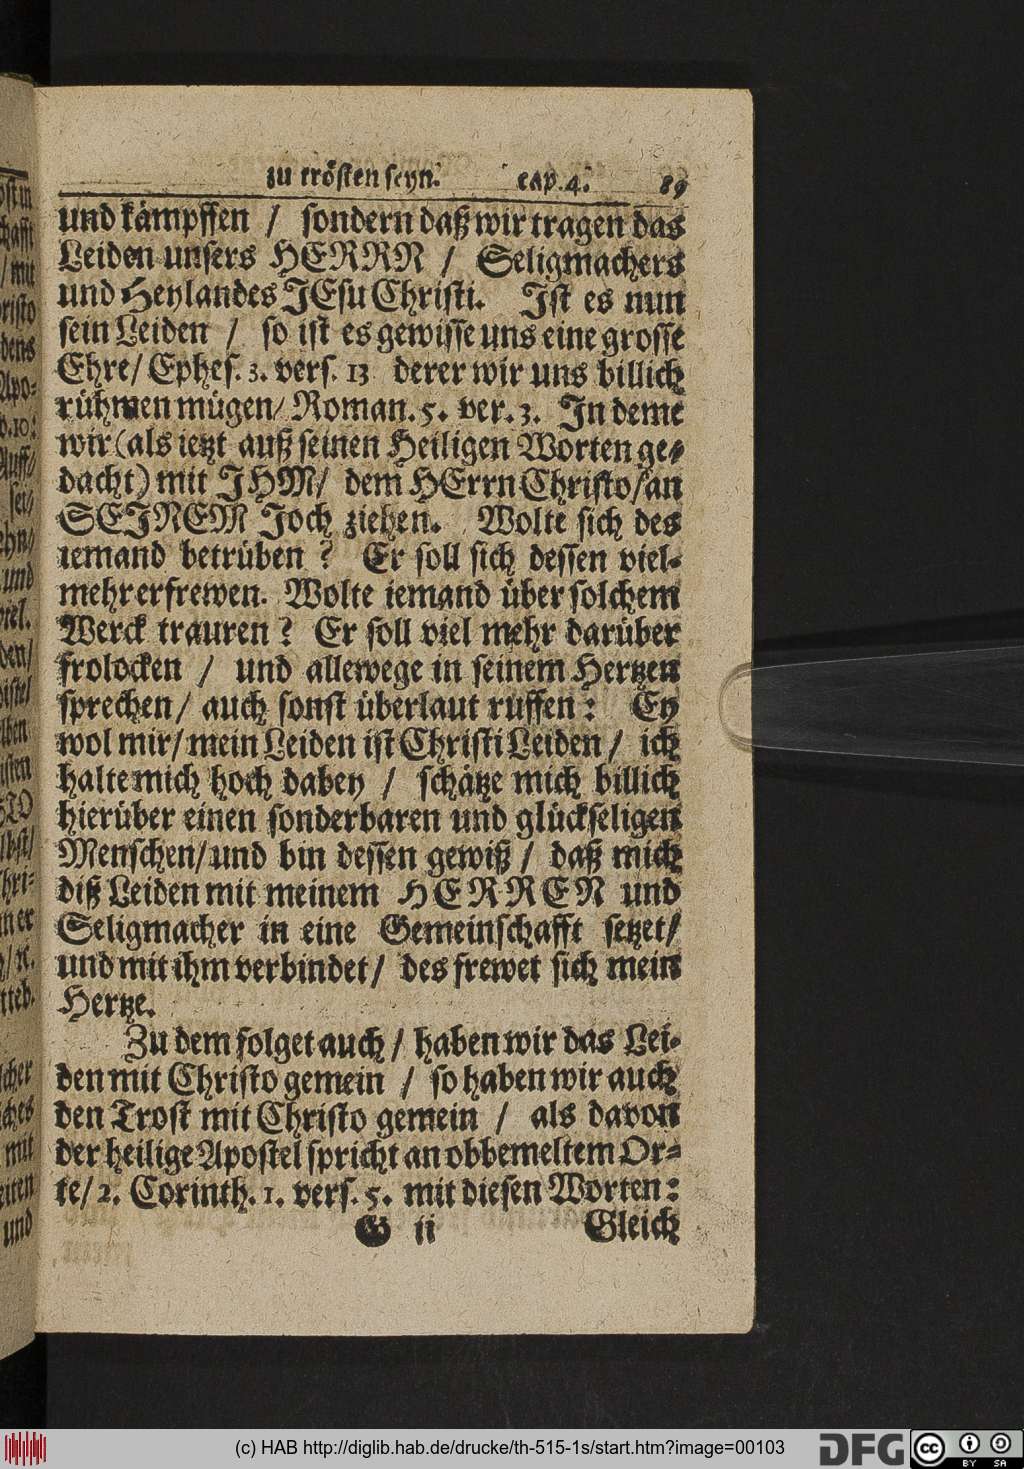 zu trösten seyn. cap. 4. 89
und kämpffen / sondern daß wir tragen das
Leiden unsers HERRN / Seligmachers
und Heylandes JEsu Christi. Jst es nun
sein Leiden / so ist es gewisse uns eine grosse
Ehre/ Ephes. 3. vers. 13 derer wir uns billich
rühmen mügen/ Roman. 5. ver. 3. Jn deme
wir (als ietzt auß seinen Heiligen Worten ge-
dacht) mit JHM/ dem HErrn Christo/ an
SEJNEM Joch ziehen. Wolte sich des
iemand betrüben? Er soll sich dessen viel-
mehr erfrewen. Wolte iemand über solchem
Werck trauren? Er soll viel mehr darüber
frolocken / und allewege in seinem Hertzen
sprechen/ auch sonst überlaut ruffen: Ey
wol mir/ mein Leiden ist Christi Leiden / ich
halte mich hoch dabey / schätze mich billich
hierüber einen sonderbaren und glückseligen
Menschen/ und bin dessen gewiß / daß mich
diß Leiden mit meinem HERREN und
Seligmacher in eine Gemeinschafft setzet/
und mit ihm verbindet/ des frewet sich mein
Hertze.
Zu dem folget auch / haben wir das Lei-
den mit Christo gemein / so haben wir auch
den Trost mit Christo gemein / als davon
der heilige Apostel spricht an obbemeltem Or-
te/ 2. Corinth. 1. vers. 5. mit diesen Worten:
G ii Gleich
(c) HAB http://diglib.hab.de/drucke/th-515-1s/start.htm?image=00103
DFG
cc BY SA